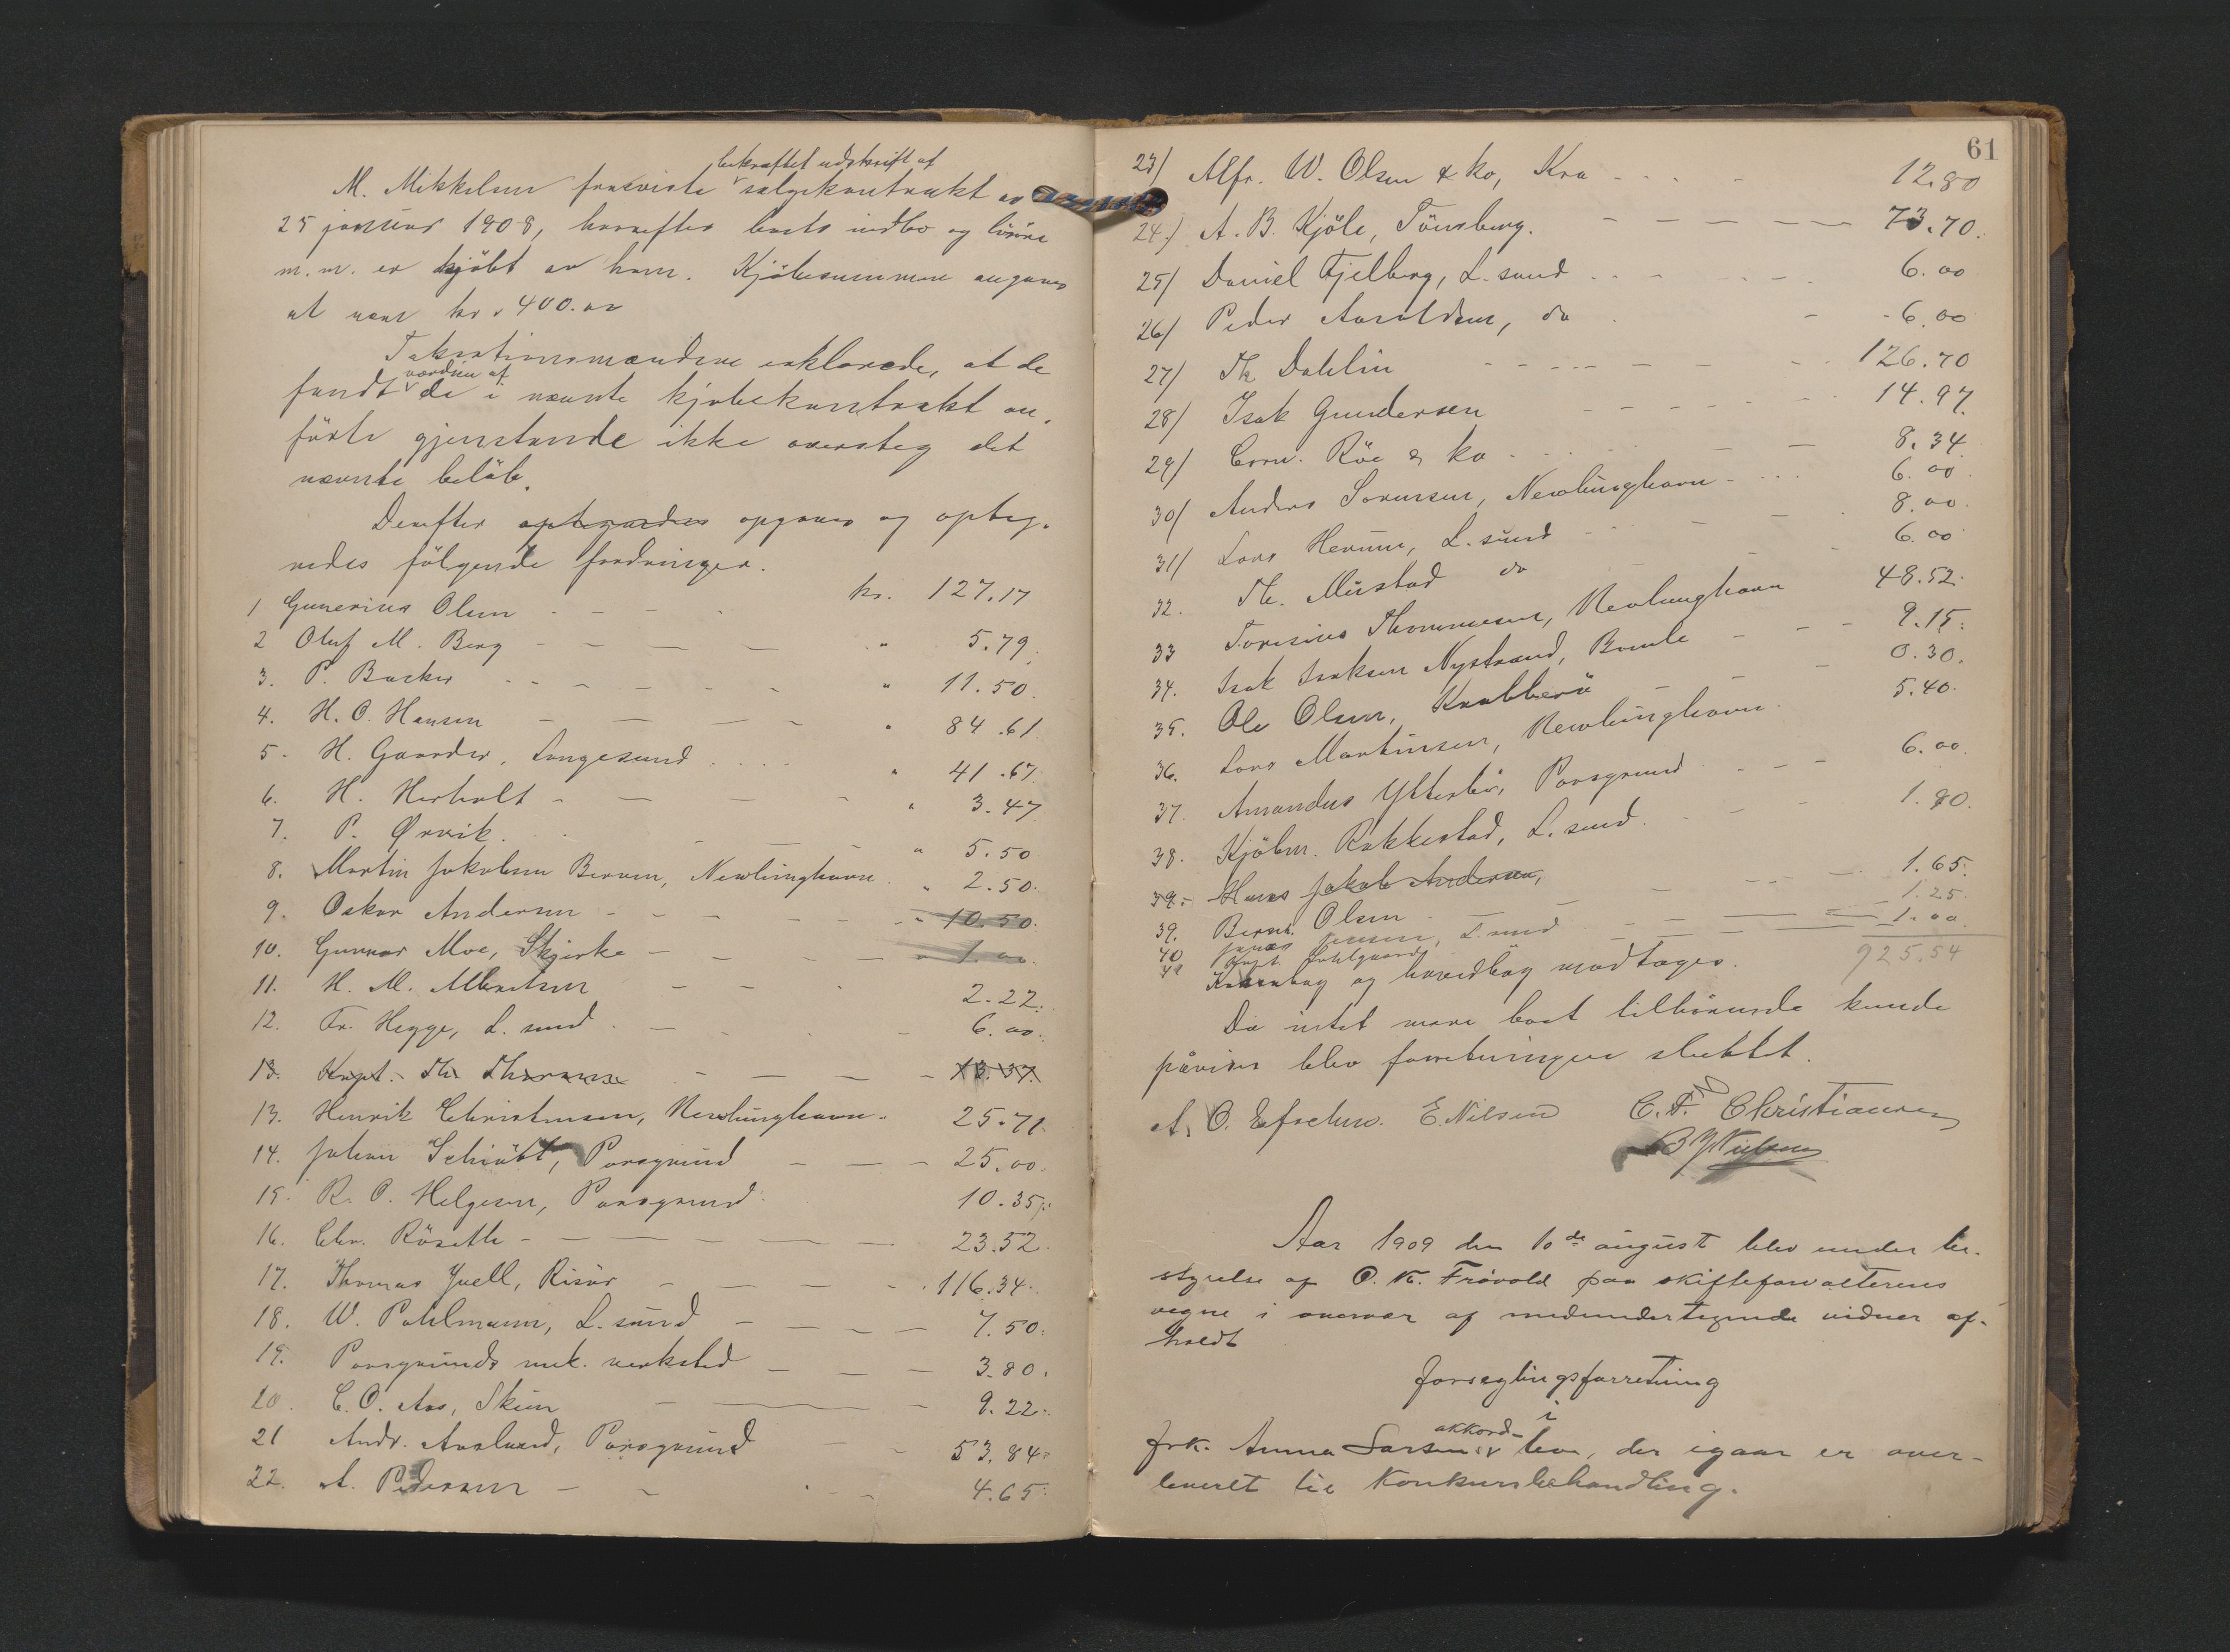 bekræftet udskrift af
M. Mikkelsen fremviste salgskontrakt av
25 januar 1908, hvorefter boets indbo og lösöre
m.m. er kjöbt av ham. Kjöbesummen angaves
at være kr. 400.00
Taksationsmændene erklærede, at de
værdien af
fandt de i nævnte kjöbekontrakt an-
förte gjenstande ikke oversteg det
nævnte belöb.
Derefter optegnedes opgaves og opteg-
nedes fölgende fordringer.
1 Gunerius Olsen kr. 127.17
2 Oluf M. Berg " 5.79
3. P. Backer " 11.50
4. H. O. Hansen " 84.61
5. H. Gaarder, Langesund " 41.67
6. H. Herholt " 3.47
7. P. Ørvik " 5.50
8. Martin Jakobsen Berven, Nevlunghavn " 2.50
9. Oskar Andersen " 10.50
10. Gunnar Moe, Skjerke " 1.00
11. H. M. 2.22
12. Fr. Hegge, L. sund 6.00
13. Kapt. Th. Thorsen 13.37
13. Henrik Christensen, Nevlunghavn 25.71
14. Johan Schiött, Porsgrund 25.00
15. R. P. Helgesen, Porsgrund 10.35
16. Chr. Röseth 23.52
17. Thomas Juell, Risör 116.34
18. W. Pohlmann, L. sund 7.50
19. Porsgrunds mek. verksted 3.80
20. C. O. Aas, Skien 9.22
21 Andr. Aasland, Porsgrund 53.84
22. A. Pedersen 4.65
61
23/ Alfr. W. Olsen & ko, Kra 12.80
24/ A. B. Kjöle, Tönsberg. 73.70
25/ Daniel Fjelberg, L. sund 6.00
26/ Peder Aaraldsen, do 6.00
27/ Th Dahlin 126.70
28/ Isak Gundersen 14.97
29/ Corn. Röe & ko 8.34
30/ Anders Sörensen, Nevlunghavn 6.00
31/ Lars Herum, L. sund 8.00
32. Th. Mustad do 6.00
33 Toresius Thommesen, Nevlunghavn 48.52
34. Isak Isaksen Nystrand, Bamle 9.15
35. Ole Olsen, Krabberö 0.30
36. Lars Martinsen, Nevlunghavn 5.40
37. Amandus Ytterbö, Porsgrund 6.00
38. Kjöbm. Rakkestad, L. sund 1.80
39. Hans Jakob Andersen,
39. Bernt Olsen 1.65
40 Jensen, L. sund 1.25
41 Kapt. 1.00
925.54
Kassabog og hovedbog modtoges.
Da intet mere boet tilhörende kunde
påvises blev forretningen sluttet.
A. O. E. Nilsen C. F. Christiansen
B Nielsen
Aar 1909 den 10de august blev under be-
styrelse af O. K. Frövold paa skifteforvalterens
vegne i overvær af medundertegnede vidner af-
holdt
forseglingsforretning
i
akkord-
frk. Anna Larsens bo, der igaar er over-
leveret til Konkursbehandling.